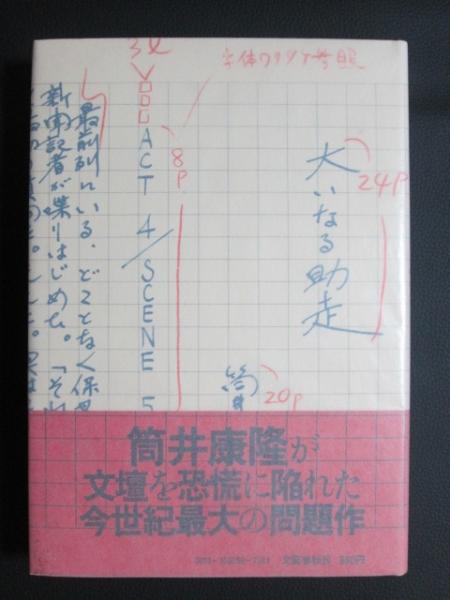 大いなる助走
24P
字体ワリツケ参照
筒井
20P
3ℓ
ACT 4/SCENE 5
8P
最前列にいる、どことなく保母
新聞記者が喋りはじめた。「それ
筒井康隆が
文壇を恐慌に陥れた
今世紀最大の問題作
文藝春秋